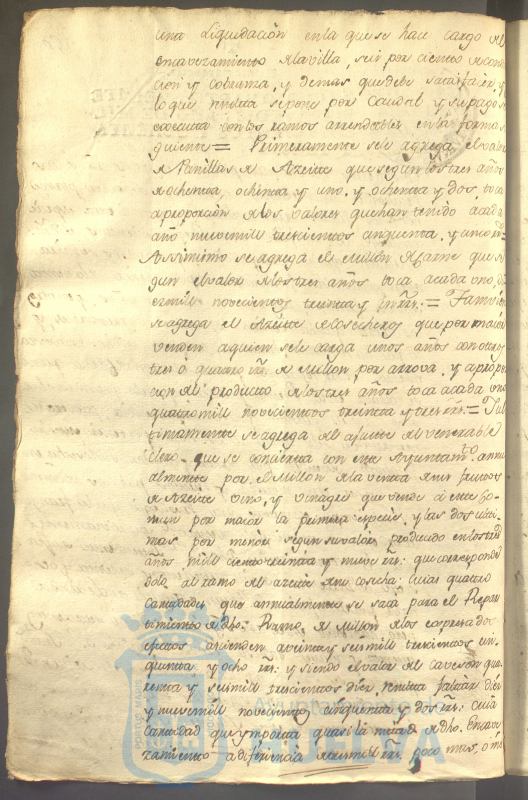 una Liquidación en la que se hace cargo del
encavezamiento de la villa, seis por ciento de conduc
cion y cobranza, y demas que debe satisfacer y
lo que resulta se pone por Caudal y su pago se
executa con los ramos arrendables en la forma si
guiente = Primeramente se agrega el valor
de Panillas de Azeite que segun los tres años
de ochenta, ochenta y uno, y ochenta y dos toca
a proporción de los valores que han tenido a cada
año nuevemill trescientos cinquenta y un rr.s =
Assimismo se agrega el de Millon de Carne que se
gun el valor de los tres años toca a cada uno di
ezmill novecientos treinta y rr.s = Tamvien
se agrega el Azeite de Cosecheros que por maior
venden a quien se le carga unos años con otros
tres o quatro rr.s de Millon por arrova, y a propor
cion del producto de los tres años toca a cada uno
quatromill novecientos treinta y tres rr.s = Y ul
timamente se agrega el ajuste del venerable
Clero que se concierta con este Ayuntam.to annu
almente por el Millon de la venta de sus frutos
de Azeite vino, y vinagre que vende a este co
mun por maior la primera especie, y las dos ulti
mas por menor segun su valor producido en los tres
años mill ciento treinta y nueve rr.s que correspon
dole al ramo del azeite de su cosecha: Cuias quatro
Cantidades que annualmente se saca para el Repar
timiento de dho. Ramo de Millon de los expresados
efectos ascienden a veinte y seismill trescientos cin
quenta y ocho rr.s y siendo el valor del Caveson qua
renta y seismill trescientos diez, resulta faltar diez
y nuevemill novecientos cinquenta y dos rr.s Cuia
Cantidad que ymporta quasi la mitad de dho. Encave
zamiento a diferencia de tresmill rr.s poco mas, o me
PORTUS MARIS